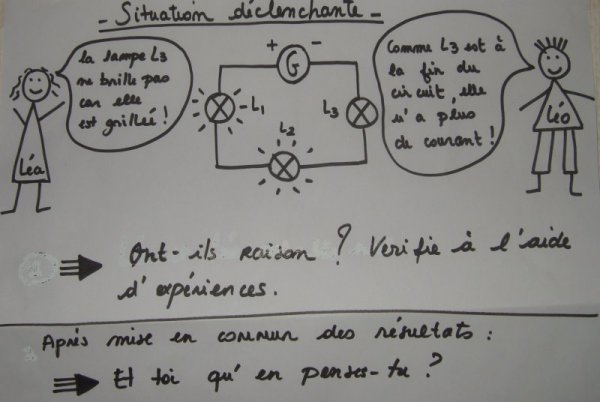 - Situation déclenchante -
la lampe L3
ne brille pas
car elle
est grillée !
Léa
+ G -
L1
L2
L3
Comme L3 est à
la fin du
circuit, elle
n'a plus
de courant !
Léo
Ont-ils raison ? Verifie à l'aide
d'expériences.
Après mise en commun des résultats :
Et toi qu'en penses-tu ?